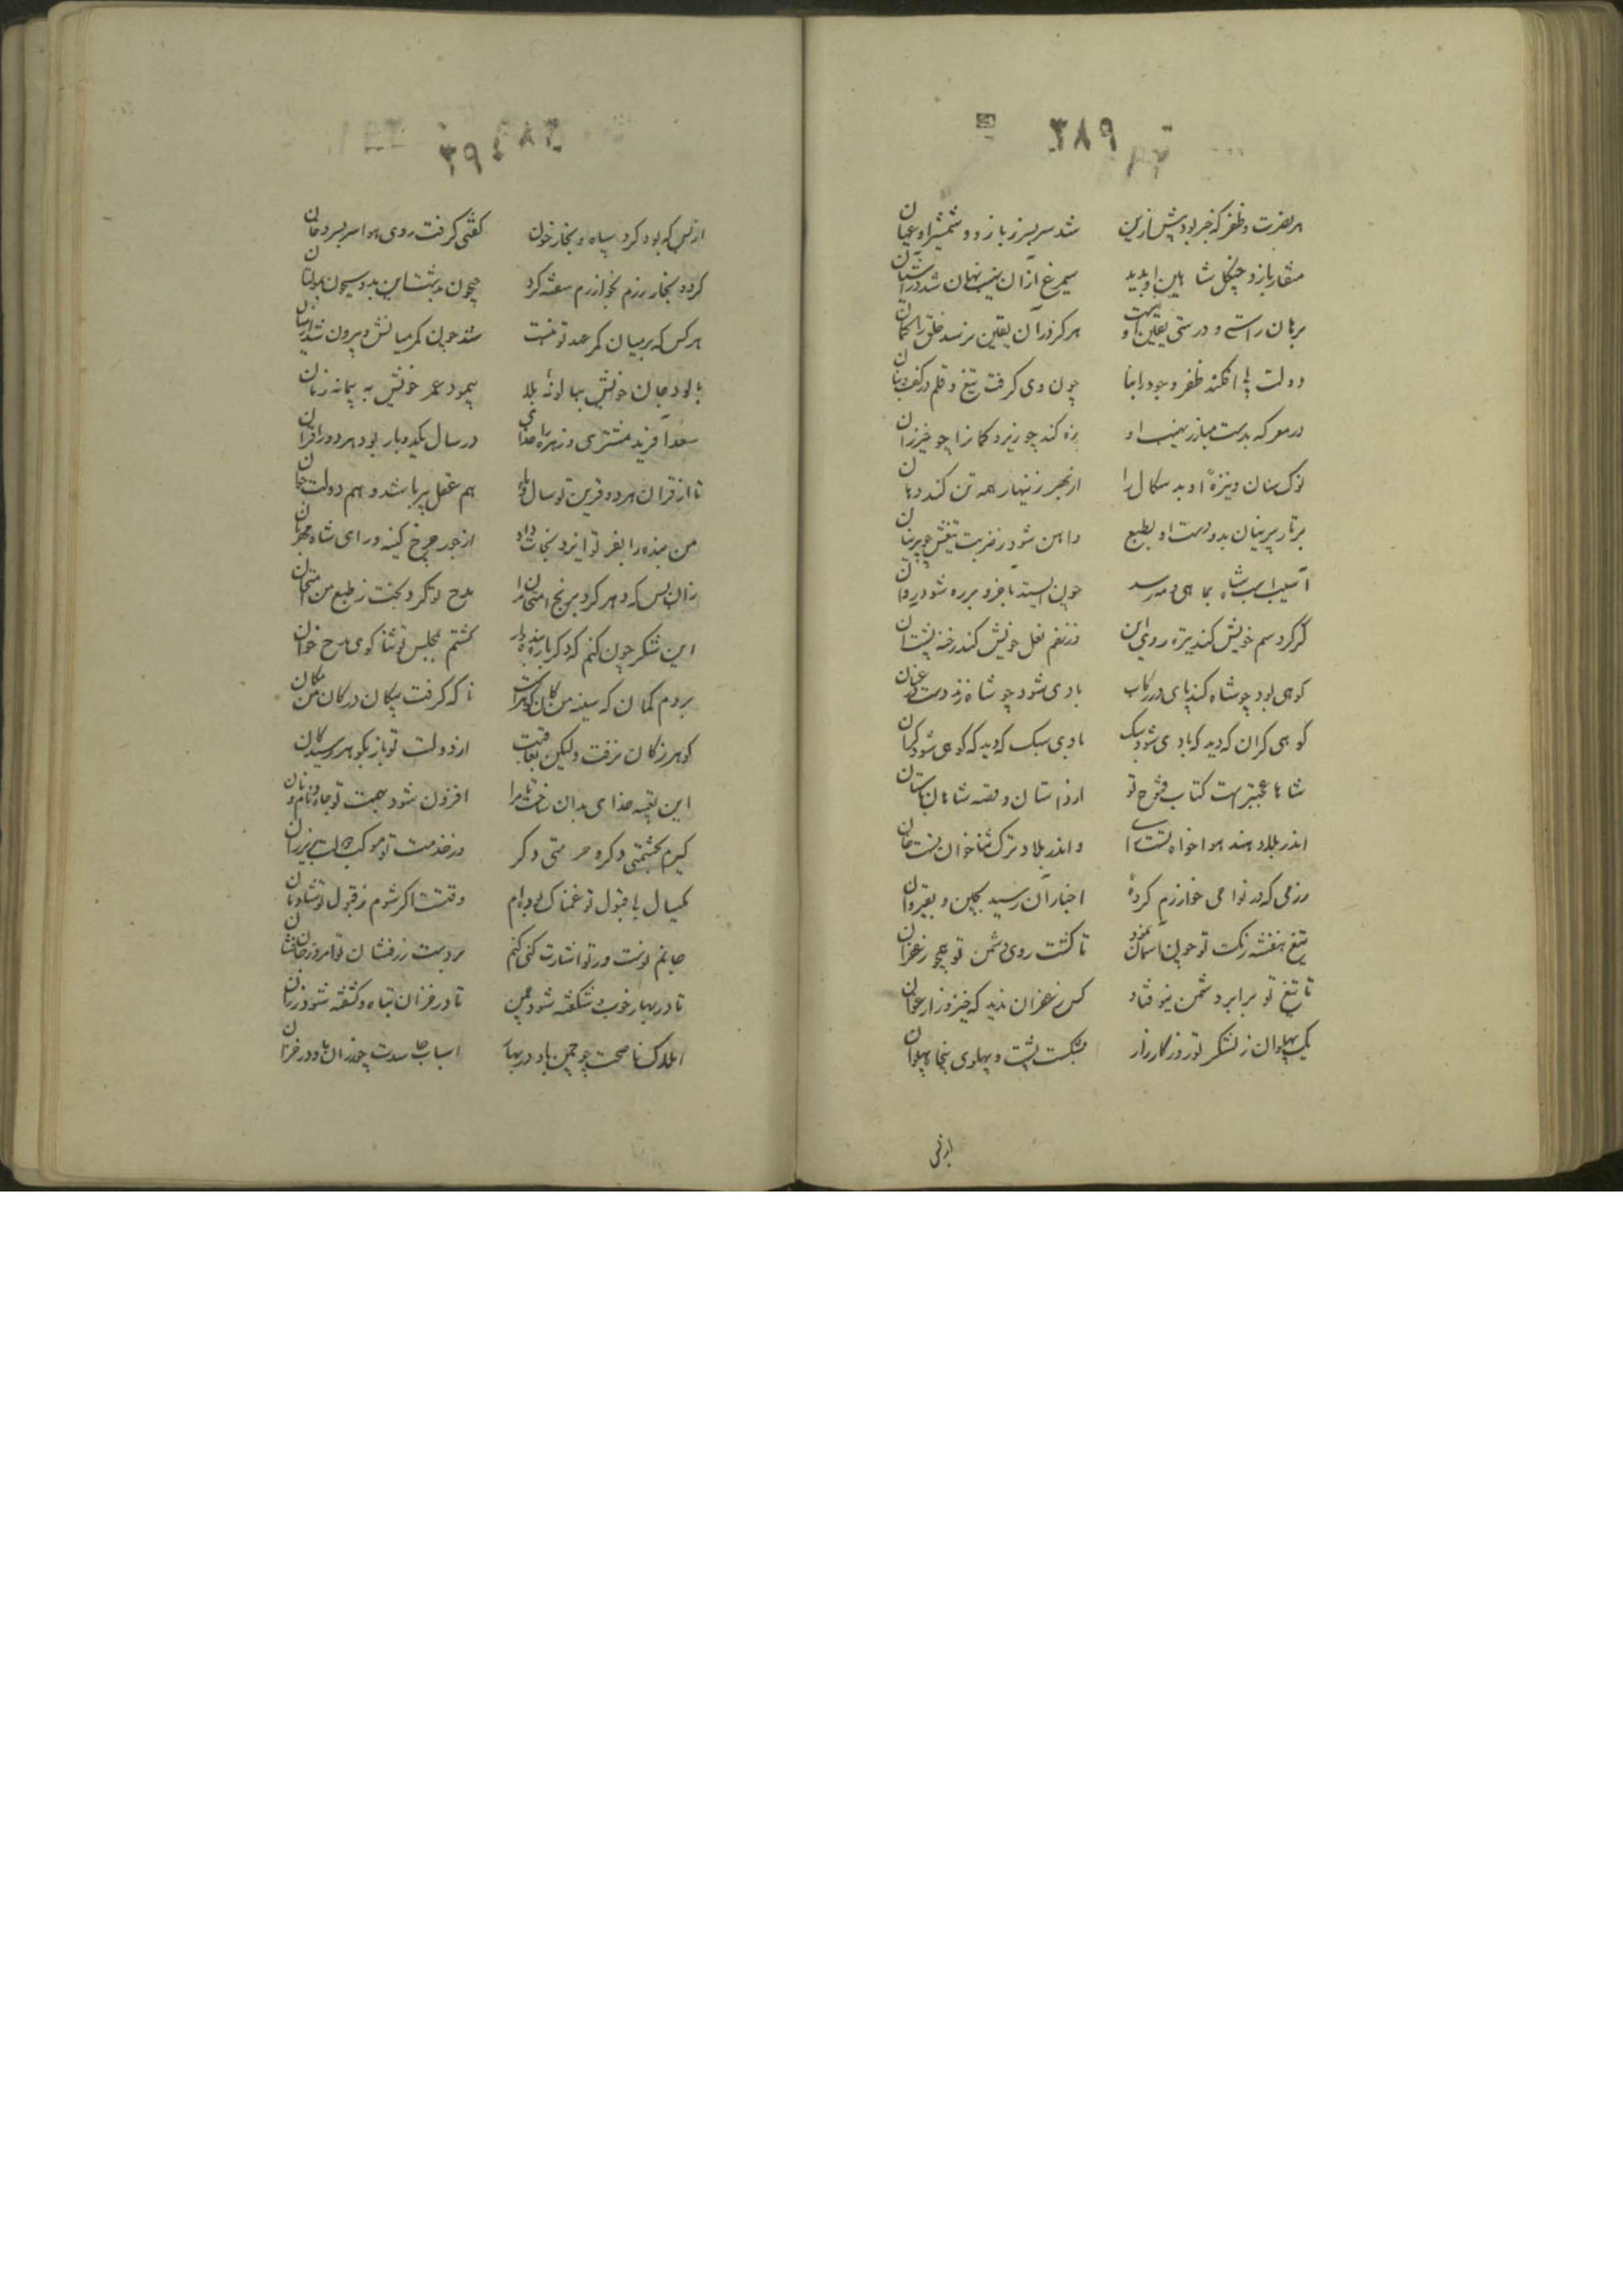 ۳۸۹
هر نصرت و ظفر که خبر بود پیش ازین شد سربسر ز بازو و شمشیر او عیان
منقار باز و چنگل شاهین او بدید سیمرغ ازان نهیب نهان شد در آشیان
برهان راستی و درستی یقین اوست هرگز در آن یقین نرسد خلق را گمان
دولت افکند ظفر و جود را بنا چون وی گرفت تیغ و قلم در کف و بنان
در معرکه بدست مبارز نهیب او زه کند چو ریزد کمانرا چو خیزران
نوک سنان و نیزهٔ او بد سگال را از بهر زینهار همه تن کند دهان
بر تار پرنیان بدو دست او بطبع و آهن شود ز ضربت تیغش چو پرنیان
آسیب اسب شاه بماهی و مه رسد چون ایستد بآخر و بر ره شود روان
گر گرد سم خویش کند تیره روی این وز نعل خویش کند رخنه پشت آن
کوهی بود چو شاه کند پای در رکاب بادی شود چو شاه زند دست در عنان
کوهی گران که دید که بادی شود سبک بادی سبک که دید که کوهی شود گران
شاها عجبتر است کتاب فتوح تو از داستان و قصه شاهان باستان
اندر بلاد هند هواخواه تست رای و اندر بلاد ترک ثناخوان تست خان
رزمی که در نواحی خوارزم کردهٔ اخبار آن رسید بچین و بقیروان
تیغ بنفشه رنگ تو چون آسمان نمود تا گشت روی دشمن تو همچو زعفران
تا تیغ تو برابر دشمن نیوفتاد کس زعفران ندید که خیزد ز ارغوان
یک پهلوان ز لشکر تو روز کارزار بشکست پشت و پهلوی پنجاه پهلوان
از بس که بود گرد سپاه و بخار خون گفتی گرفت روی هوا سربسر دخان
گردد بخار رزم بخوارزم چیحون بدست این بد و سیحون
هر کس که بر میان کمر عهد تو نبست شد چون کمر میانش و بیرون شد از میان
جان خویش بهانهٔ بلا پیمود عمر خویش به پیمانه زمان
سعد آفرید مشتری و زهره را خدای در سال یکدوبار بود هر دو را قران
تا از قران هر دو قرین تو سال و ماه هم عقل پیر باشد و هم دولت جوان
من بنده را بفر تو ایزد نجات داد از جور چرخ کینه ور ای شاه مهربان
زان پس که دهر کرد برنج امتحان مرا مدح تو کرد بخت ز طبع من امتحان
این شکر چون کنم که دگر باره بنده وار گشتم بمجلس تو ثنا گوی و مدح خوان
بردم گمان که سینه من کان گوهر است ناگه گرفت پیکان در کان من مکان
گوهر ز کان برفت ولیکن بعاقبت از دولت تو باز بگوهر رسید کان
این بقیه خدای بدان ساخت تا مرا افزون شود بهمت تو جاه و نام و نان
گیرم بحشمتی دگر و حرمتی دگر در خدمت تو موکب
یکسال با قبول تو غمناک بوده‌ام وقتست اگر شوم ز قبول تو شادمان
جانم توئیست ور تو اشارت کنی کنم بر دست زرفشان تو امروز جان فشان
تا در بهار خوب و شکفته شود چمن تا در خزان تباه و کشفته شود رزان
املاک ناصحت چو چمن باد در بهار اسباب حاسدت چو رزان باد در خزان